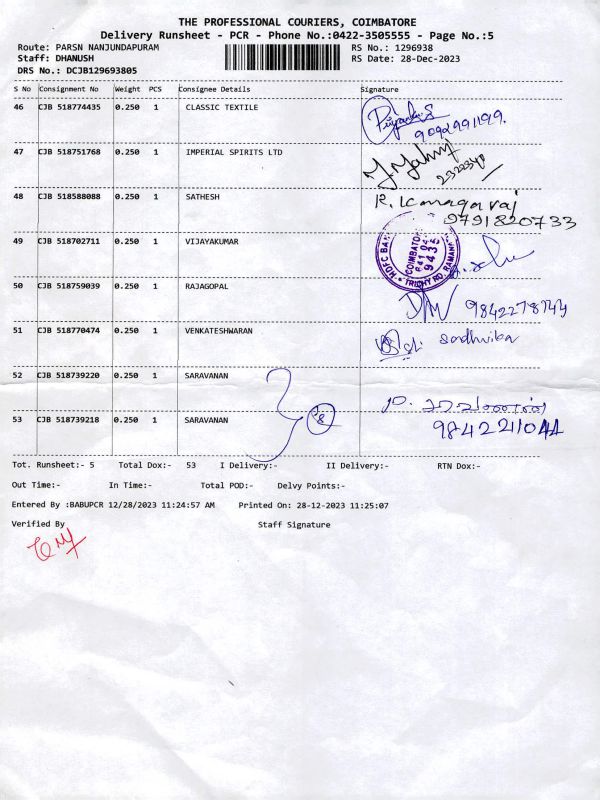 THE PROFESSIONAL COURIERS, COIMBATORE
Delivery Runsheet - PCR - Phone No.:0422-3505555 - Page No.:5
Route: PARSN NANJUNDAPURAM RS No.: 1296938
Staff: DHANUSH RS Date: 28-Dec-2023
DRS No.: DCJB129693805
S No Consignment No Weight PCS Consignee Details Signature
46 CJB 518774435 0.250 1 CLASSIC TEXTILE
9092991199.
47 CJB 518751768 0.250 1 IMPERIAL SPIRITS LTD
48 CJB 518588088 0.250 1 SATHESH R. Kanagaraj
9791820733
49 CJB 518702711 0.250 1 VIJAYAKUMAR
HDFC BANK
COIMBATORE
9435
TRICHY RD.
50 CJB 518759039 0.250 1 RAJAGOPAL
9842278744
51 CJB 518770474 0.250 1 VENKATESHWARAN Sadhvika
52 CJB 518739220 0.250 1 SARAVANAN
53 CJB 518739218 0.250 1 SARAVANAN
9842211044
Tot. Runsheet:- 5 Total Dox:- 53 I Delivery:- II Delivery:- RTN Dox:-
Out Time:- In Time:- Total POD:- Delvy Points:-
Entered By :BABUPCR 12/28/2023 11:24:57 AM Printed On: 28-12-2023 11:25:07
Verified By Staff Signature